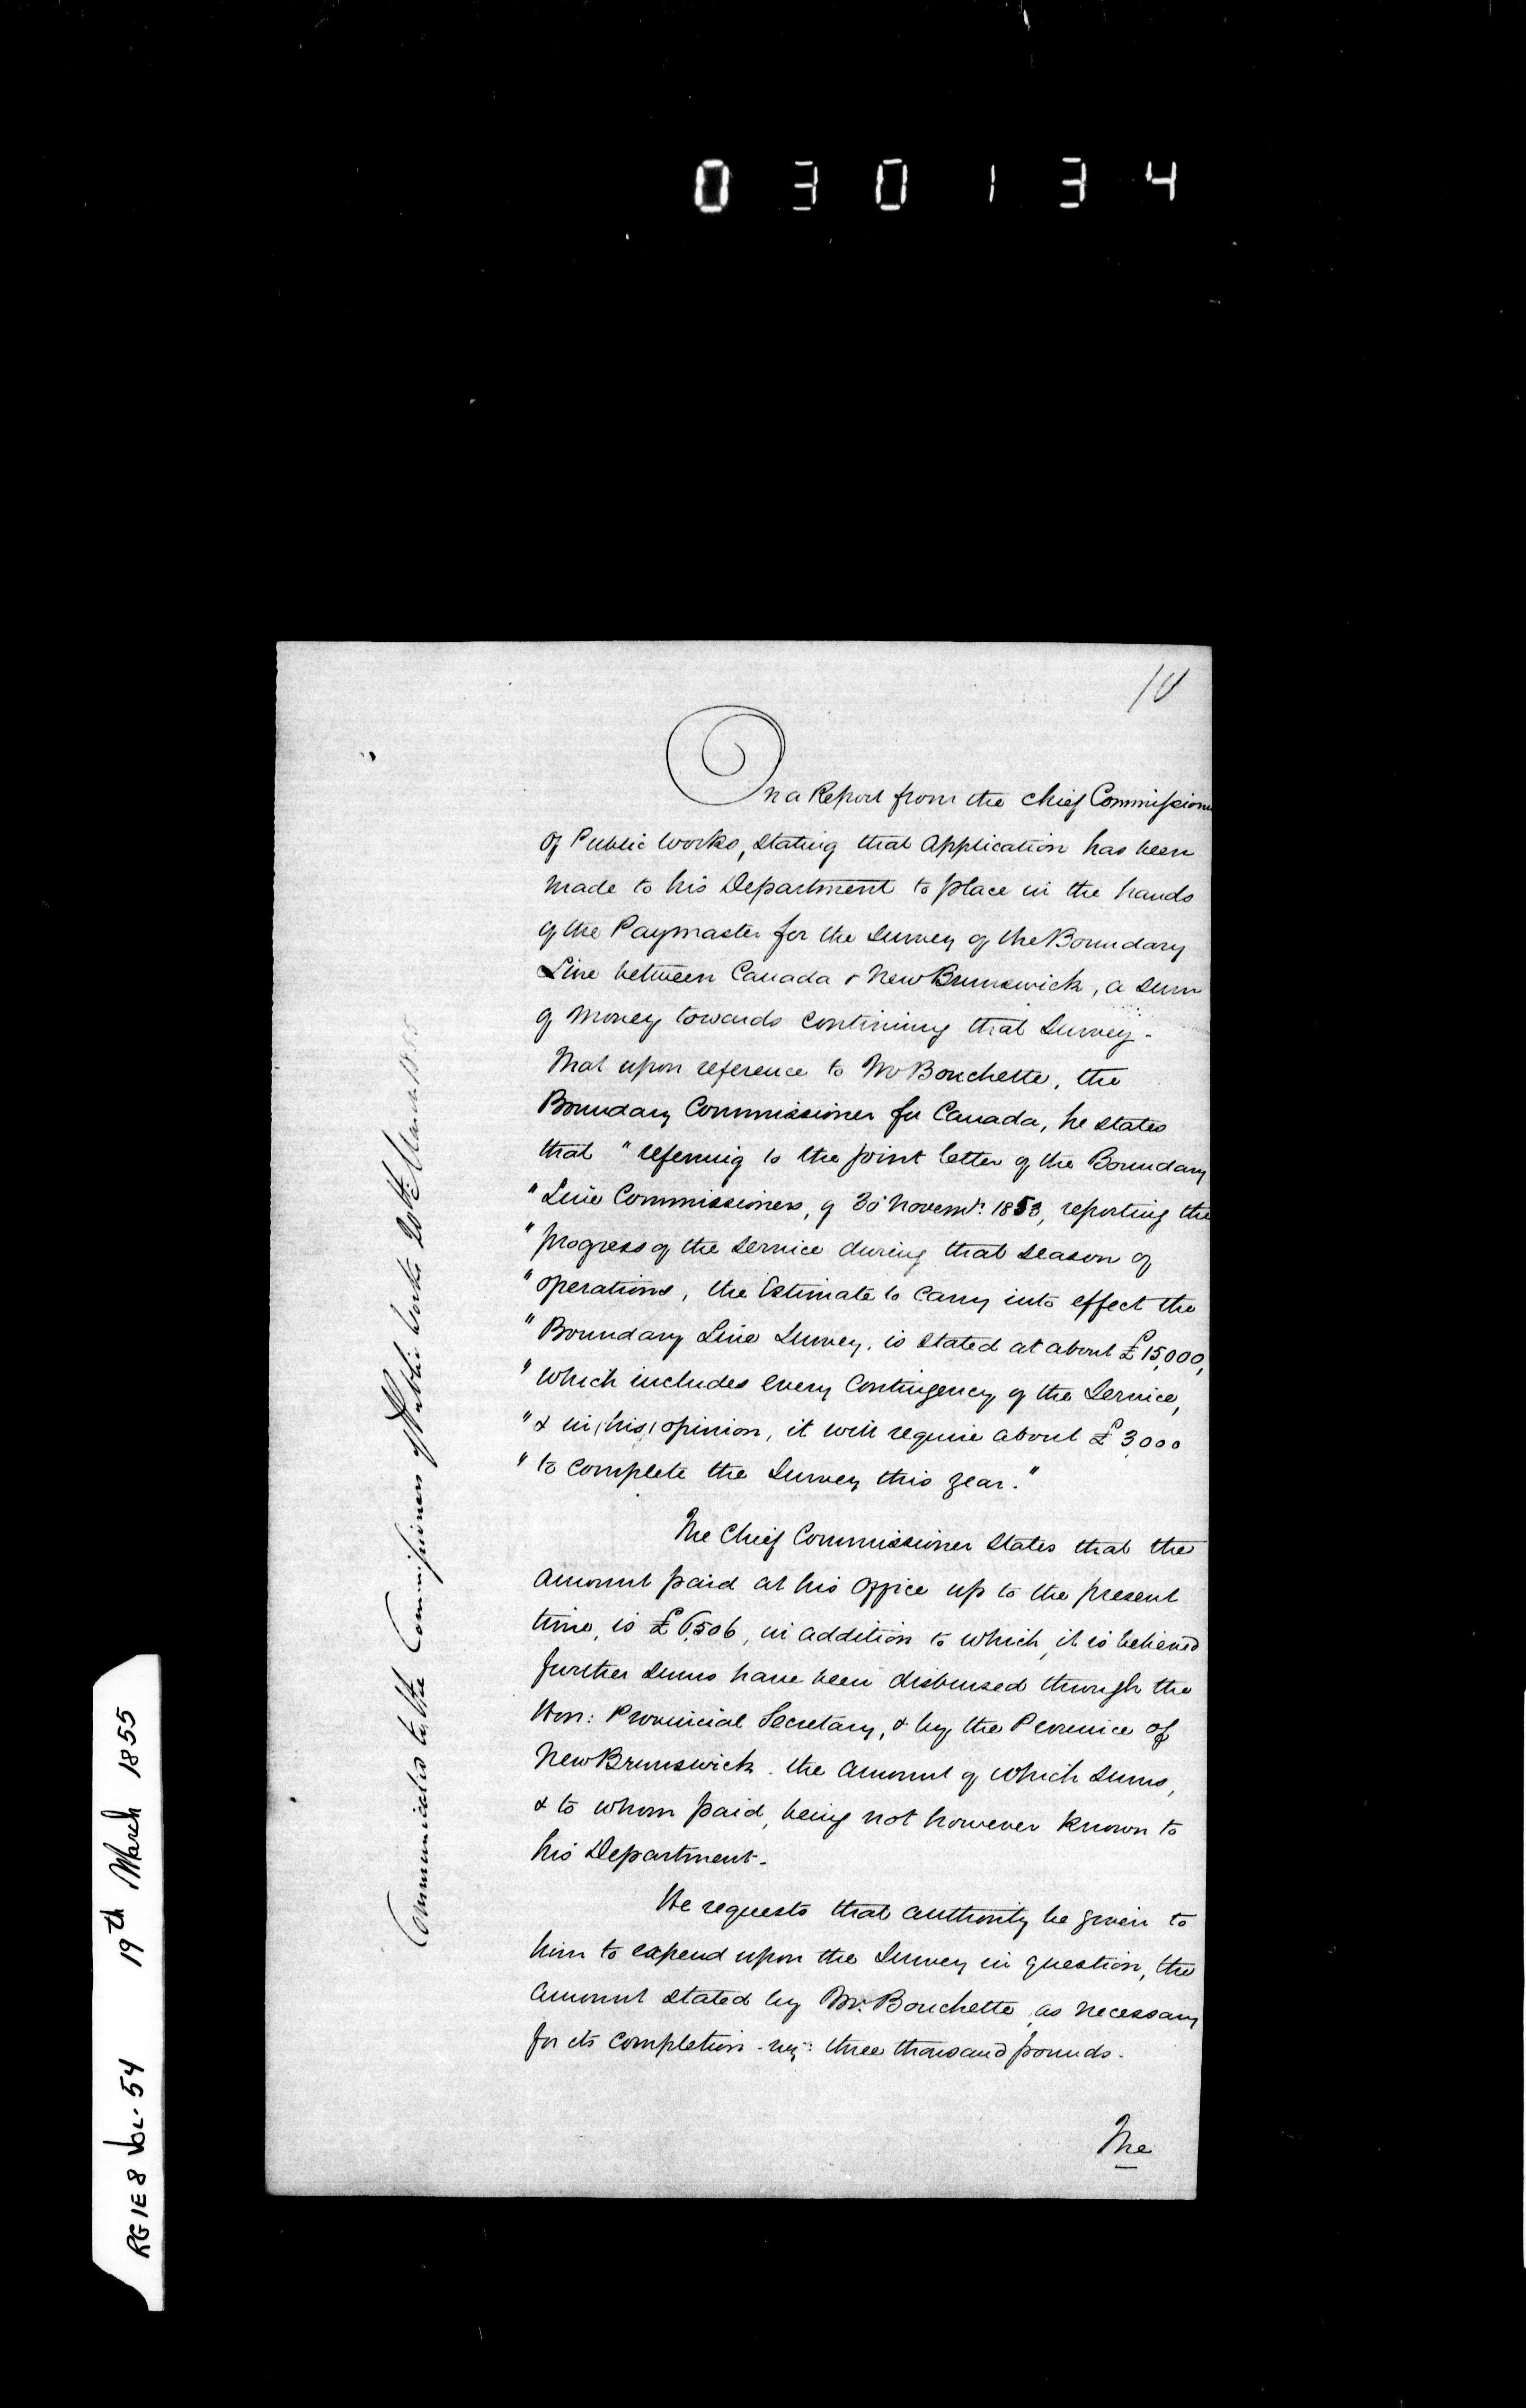 030134
10
On a Report from the Chief Commissioner
of Public Works, stating that Application has been
made to his Department to place in the hands
of the Paymaster for the Survey of the Boundary
Line between Canada & New Brunswick, a sum
of money towards continuing that Survey -
That upon reference to Mr Bouchette, the
Boundary Commissioner for Canada, he states
that "referring to the joint letter of the Boundary
"Line Commissioners, of 30 Novemr. 1853, reporting the
"progress of the Service during that Season of
"operations, the Estimate to carry into effect the
"Boundary Line Survey, is stated at about £15,000,
"which includes every Contingency of the Service,
"& in (his) opinion, it will require about £3,000
"to complete the Survey this year."
The Chief Commissioner states that the
amount paid at his Office up to the present
time, is £6,506, in addition to which, it is believed
further sums have been disbursed through the
Hon: Provincial Secretary, & by the Province of
New Brunswick. the amount of which sums,
& to whom paid, being not however known to
his Department.
He requests that authority be given to
him to expend upon the Survey in question, the
amount stated by Mr. Bouchette as necessary
for its completion - viz: three thousand pounds.
The
Communicated to the Commissioners of Public Works 20th March 1855
RG 1 E 8 Vol. 54 19th March 1855